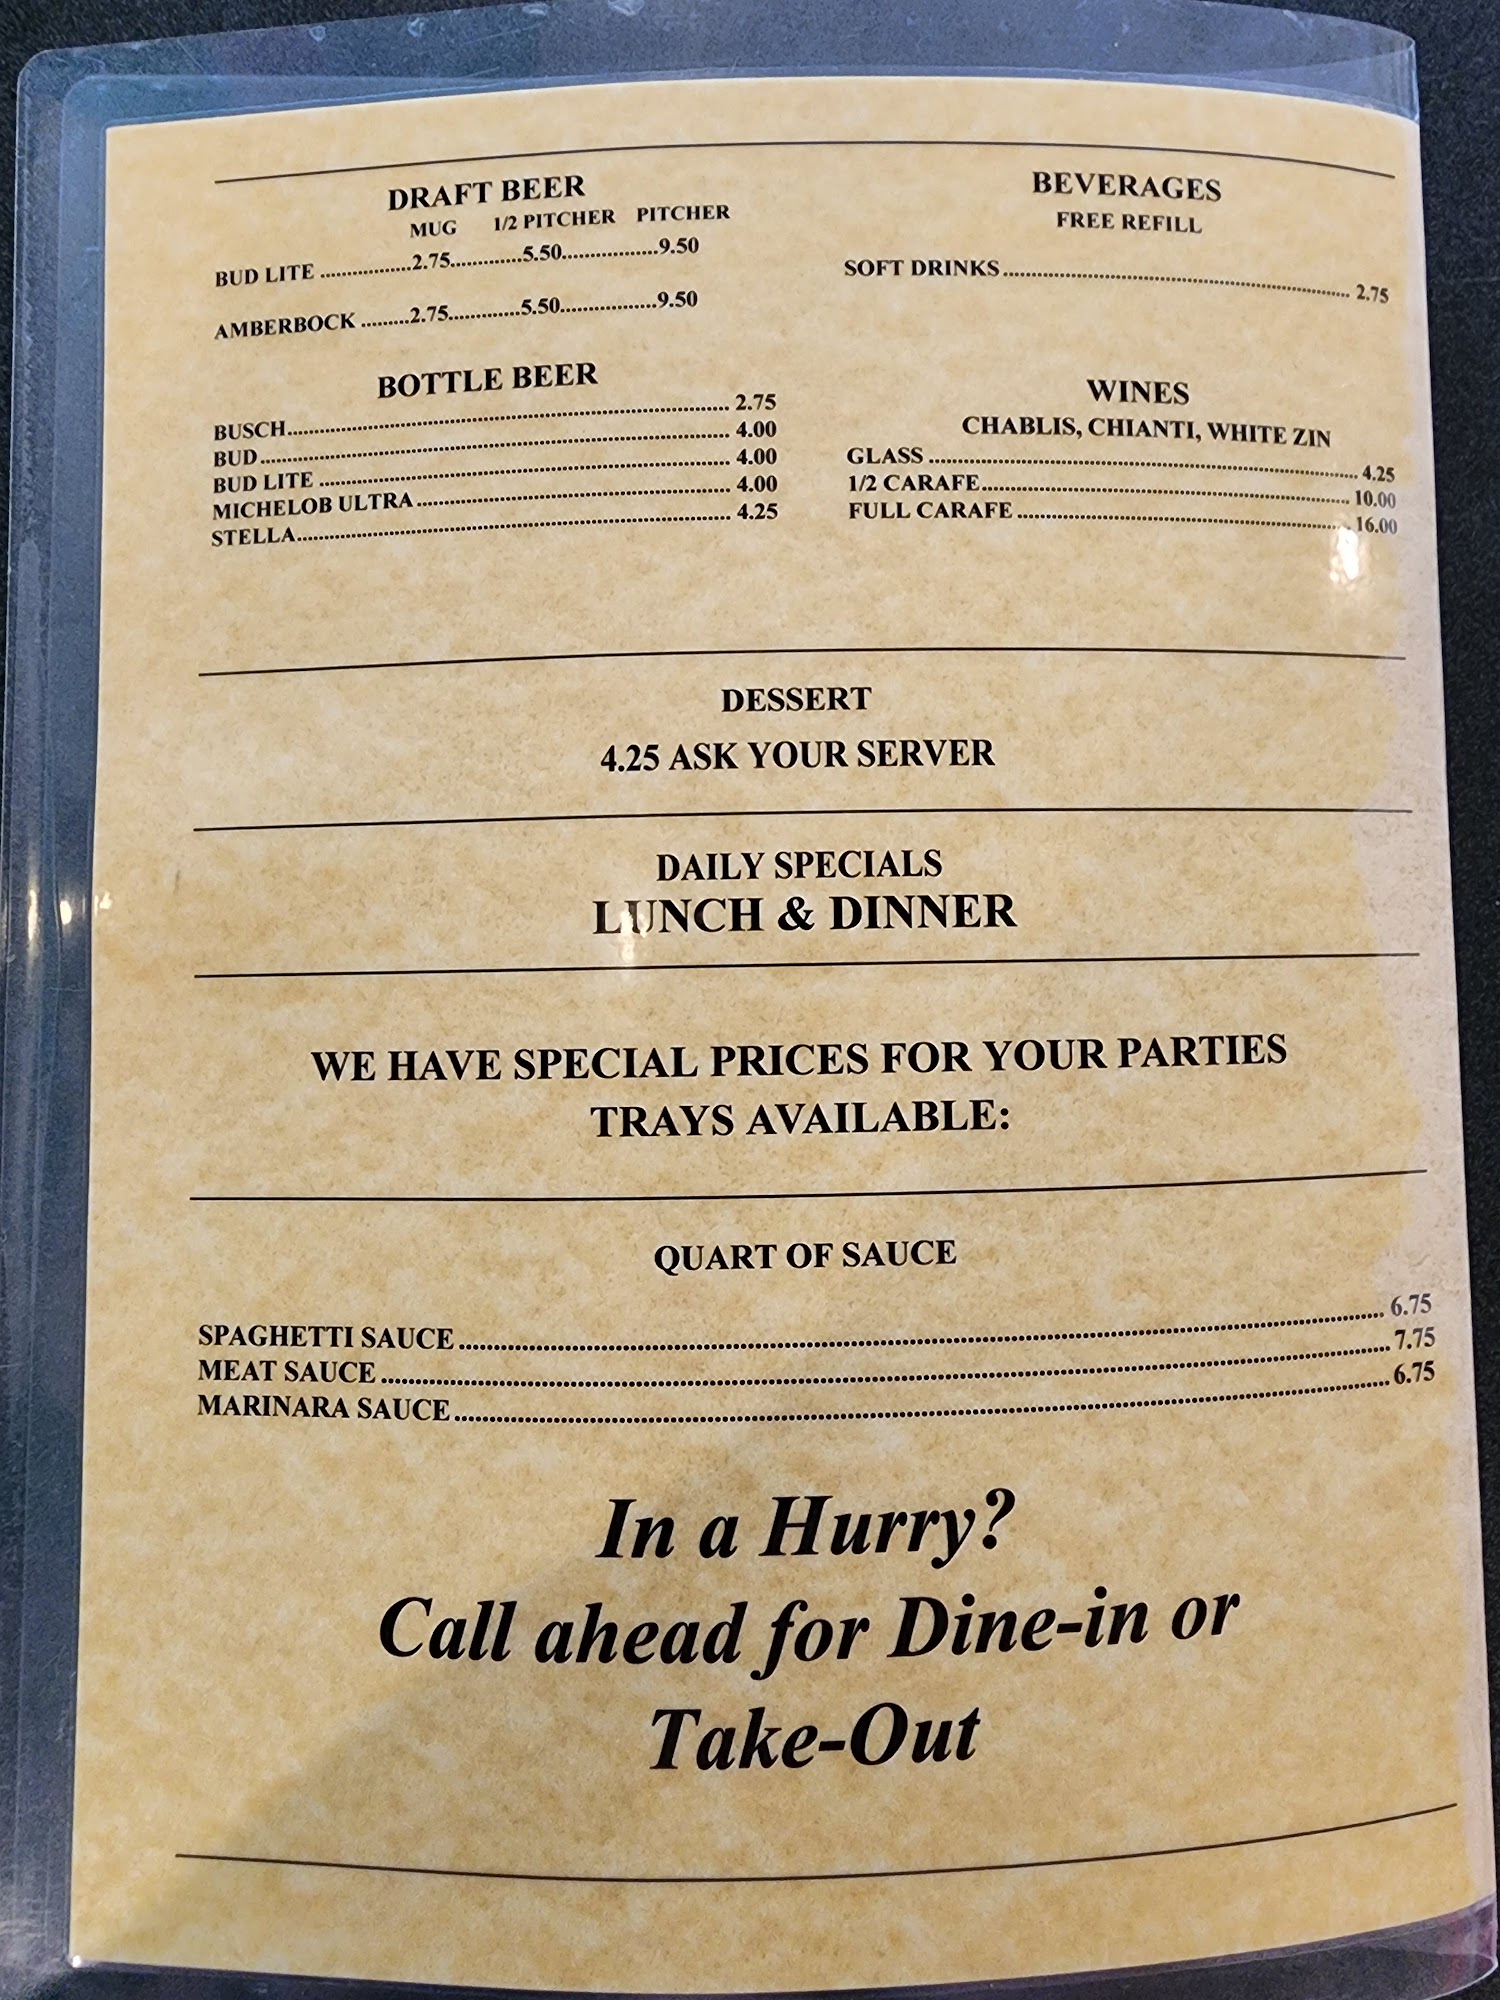 DRAFT BEER
MUG 1/2 PITCHER PITCHER
BUD LITE ................2.75.............5.50.................9.50
AMBERBOCK .........2.75.............5.50.................9.50
BOTTLE BEER
BUSCH........................ 2.75
BUD........................ 4.00
BUD LITE ........................ 4.00
MICHELOB ULTRA........................ 4.00
STELLA........................ 4.25
BEVERAGES
FREE REFILL
SOFT DRINKS........................ 2.75
WINES
CHABLIS, CHIANTI, WHITE ZIN
GLASS ........................ 4.25
1/2 CARAFE........................ 10.00
FULL CARAFE ........................ 16.00
DESSERT
4.25 ASK YOUR SERVER
DAILY SPECIALS
LUNCH & DINNER
WE HAVE SPECIAL PRICES FOR YOUR PARTIES
TRAYS AVAILABLE:
QUART OF SAUCE
SPAGHETTI SAUCE........................ 6.75
MEAT SAUCE ........................ 7.75
MARINARA SAUCE........................ 6.75
In a Hurry?
Call ahead for Dine-in or
Take-Out